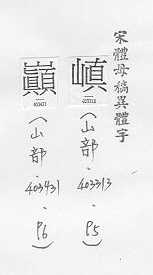 宋體母稿異體字
嵮
(山部.403313
P5)
巔
(山部.403431
P6)